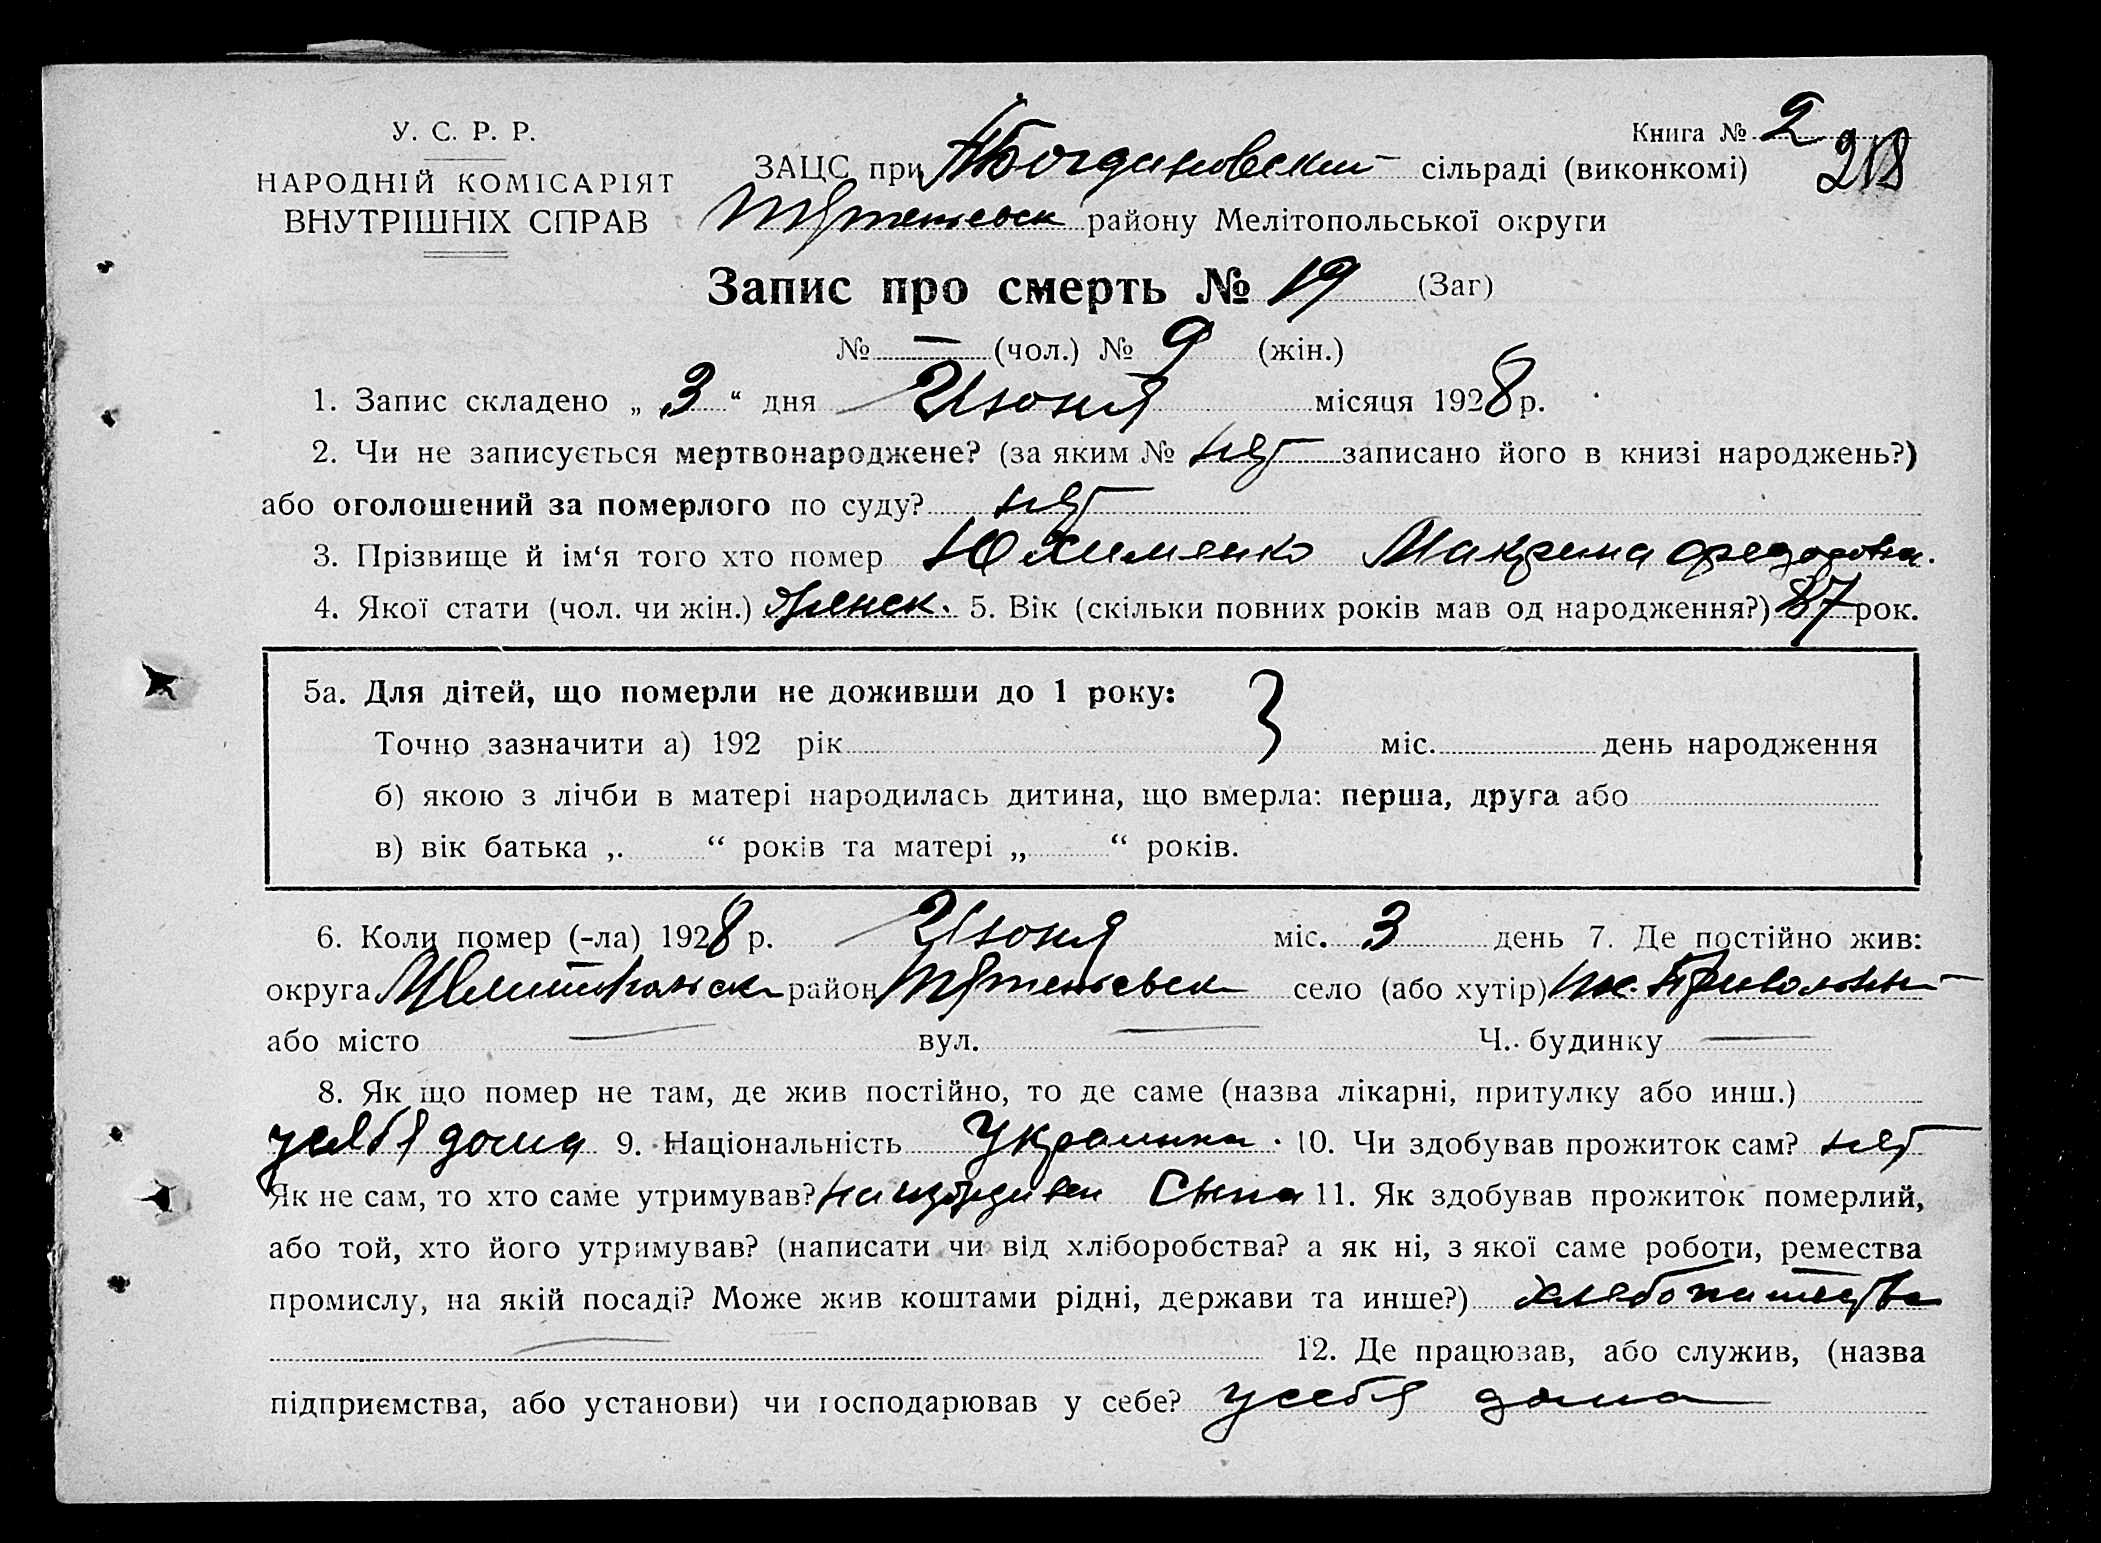 У. С. Р. Р.
НАРОДНІЙ КОМІСАРІЯТ
ВНУТРІШНІХ СПРАВ
Книга № 2
218
ЗАЦС при Богдановский сільраді (виконкомі)
району Мелітопольської округи
Запис про смерть № 19 (Заг)
№ — (чол.) № 9 (жін.)
1. Запис складено „ 3 “ дня Июня місяця 1928 р.
2. Чи не записується мертвонароджене? (за яким № нет записано його в книзі народжень?)
або оголошений за померлого по суду? нет
3. Прізвище й ім‘я того хто помер Юхименко Макрина Федоровна.
4. Якої стати (чол. чи жін.) Женск. 5. Вік (скільки повних років мав од народження?) 87 рок.
5а. Для дітей, що померли не доживши до 1 року:
Точно зазначити а) 192 рік міс. день народження
б) якою з лічби в матері народилась дитина, що вмерла: перша, друга або
в) вік батька „ “ років та матері „ “ років.
6. Коли помер (-ла) 1928 р. Июня міс. 3 день 7. Де постійно жив:
округа Мелитопольск район село (або хутір) Привольный
або місто — вул. — Ч. будинку —
8. Як що помер не там, де жив постійно, то де саме (назва лікарні, притулку або инш.)
у себя дома 9. Національність Украинка. 10. Чи здобував прожиток сам? нет
Як не сам, то хто саме утримував? на иждивен Сына 11. Як здобував прожиток померлий,
або той, хто його утримував? (написати чи від хліборобства? а як ні, з якої саме роботи, ремества
промислу, на якій посаді? Може жив коштами рідні, держави та инше?) хлебопашества
— 12. Де працював, або служив, (назва
підприємства, або установи) чи господарював у себе? у себя дома